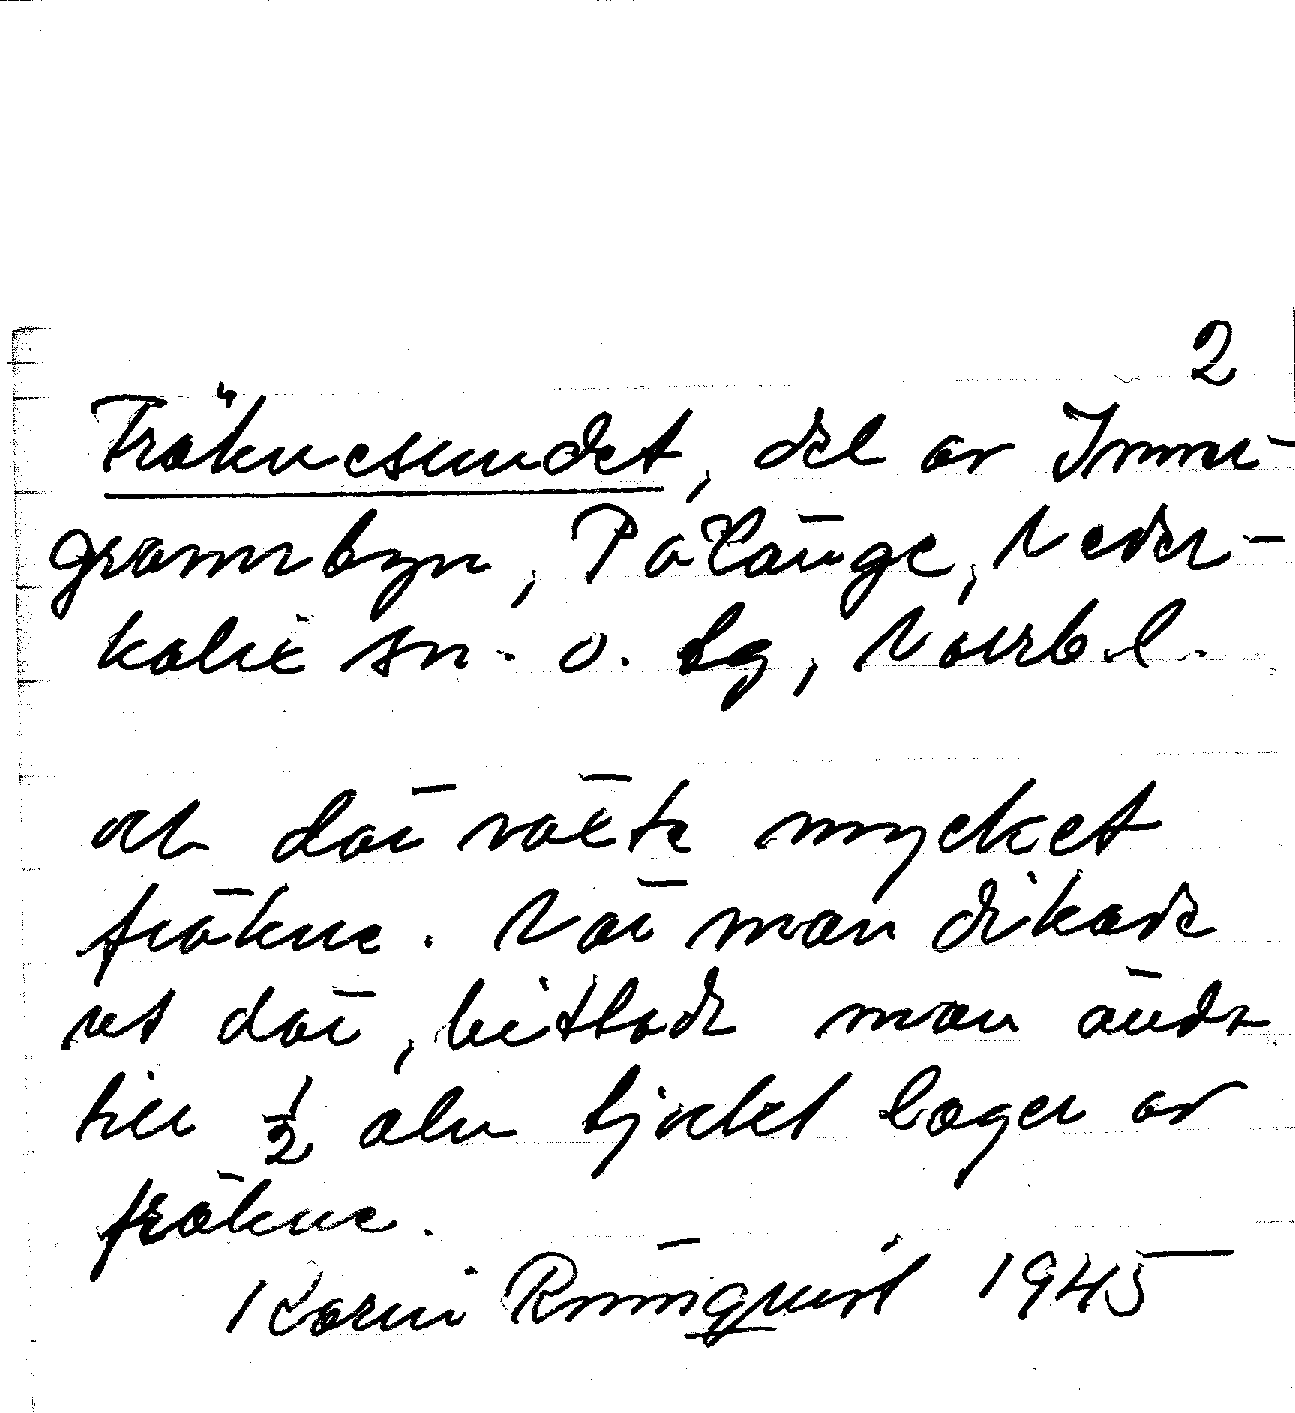 2
Fräknesundet, del av Inne-
grannbyn, Pålänge, Neder-
kalix sn. o. tg, Norrb. l.
att där växte mycket
fräkne. När man dikade
ut där, hittade man ända
till ½ aln tjockt lager av
fräkne.
Karin Rönnquist 1945